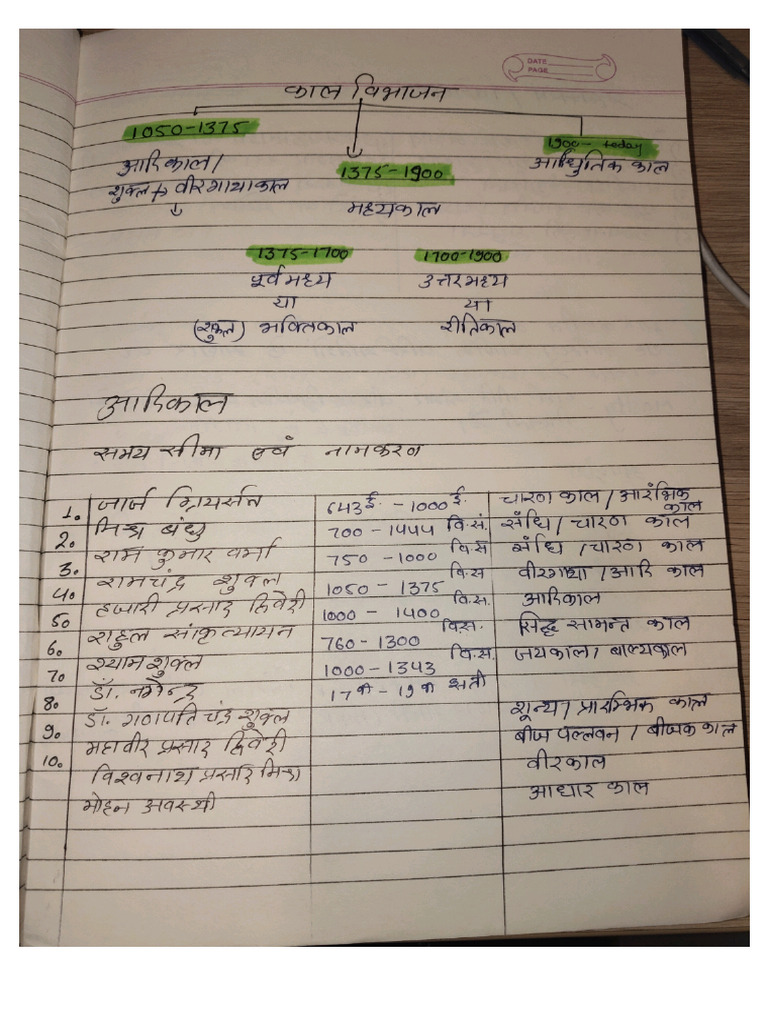 DATE
PAGE
काल विभाजन
1050-1375
1900- today
आदिकाल/
आधुतिक काल
शुक्ल → वीरगाथाकाल
1375-1900
मध्यकाल
1375-1700 1700-1900
पूर्वमध्य उत्तरमध्य
या या
(शुक्ल) भक्तिकाल रीतिकाल
आदिकाल
समय सीमा एवं नामकरण
1. जार्ज ग्रियर्सन 643ई. - 1000ई. चारण काल / आरंभिक काल
2. मिश्र बंधु 700 - 1444 वि.सं. संधि / चारण काल
3. राम कुमार वर्मा 750 - 1000 वि.स संधि /चारण काल
4. रामचंद्र शुक्ल 1050 - 1375 वि.स वीरगाथा / आदि काल
5. हजारी प्रसाद द्विवेदी 1000 - 1400 वि.स. आदिकाल
6. राहुल सांकृत्यायन 760 - 1300 वि.स. सिद्ध सामन्त काल
7. श्यामशुक्ल 1000 - 1343 वि.स. जयकाल / बाल्यकाल
8. डॉ. नगेन्द्र 17वी - 19वी शती
9. डॉ. गणपति चंद्र शुक्ल शून्य / प्रारम्भिक काल
10. महावीर प्रसाद द्विवेदी बीज पल्लवन / बीजक काल
विश्वनाथ प्रसाद मिश्रा वीरकाल
मोहन अवस्थी आधार काल